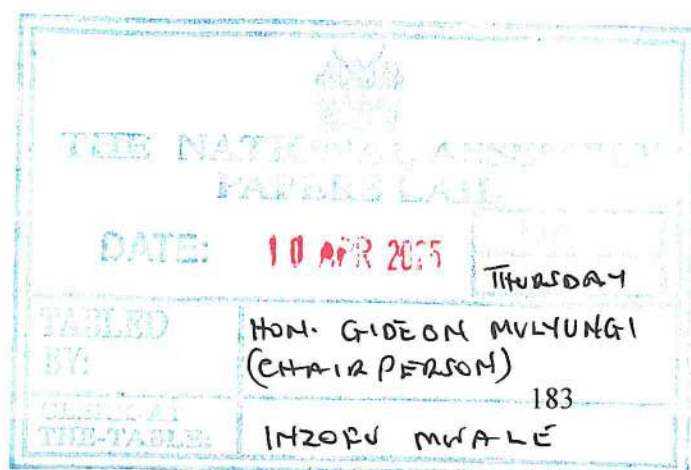 THE NATIONAL ASSEMBLY
PAPERS LAID
DATE: 10 APR 2025
THURSDAY
TABLED BY: HON. GIDEON MULYUNGI
(CHAIRPERSON)
183
CLERK-AT THE-TABLE: INZOFU MWALE